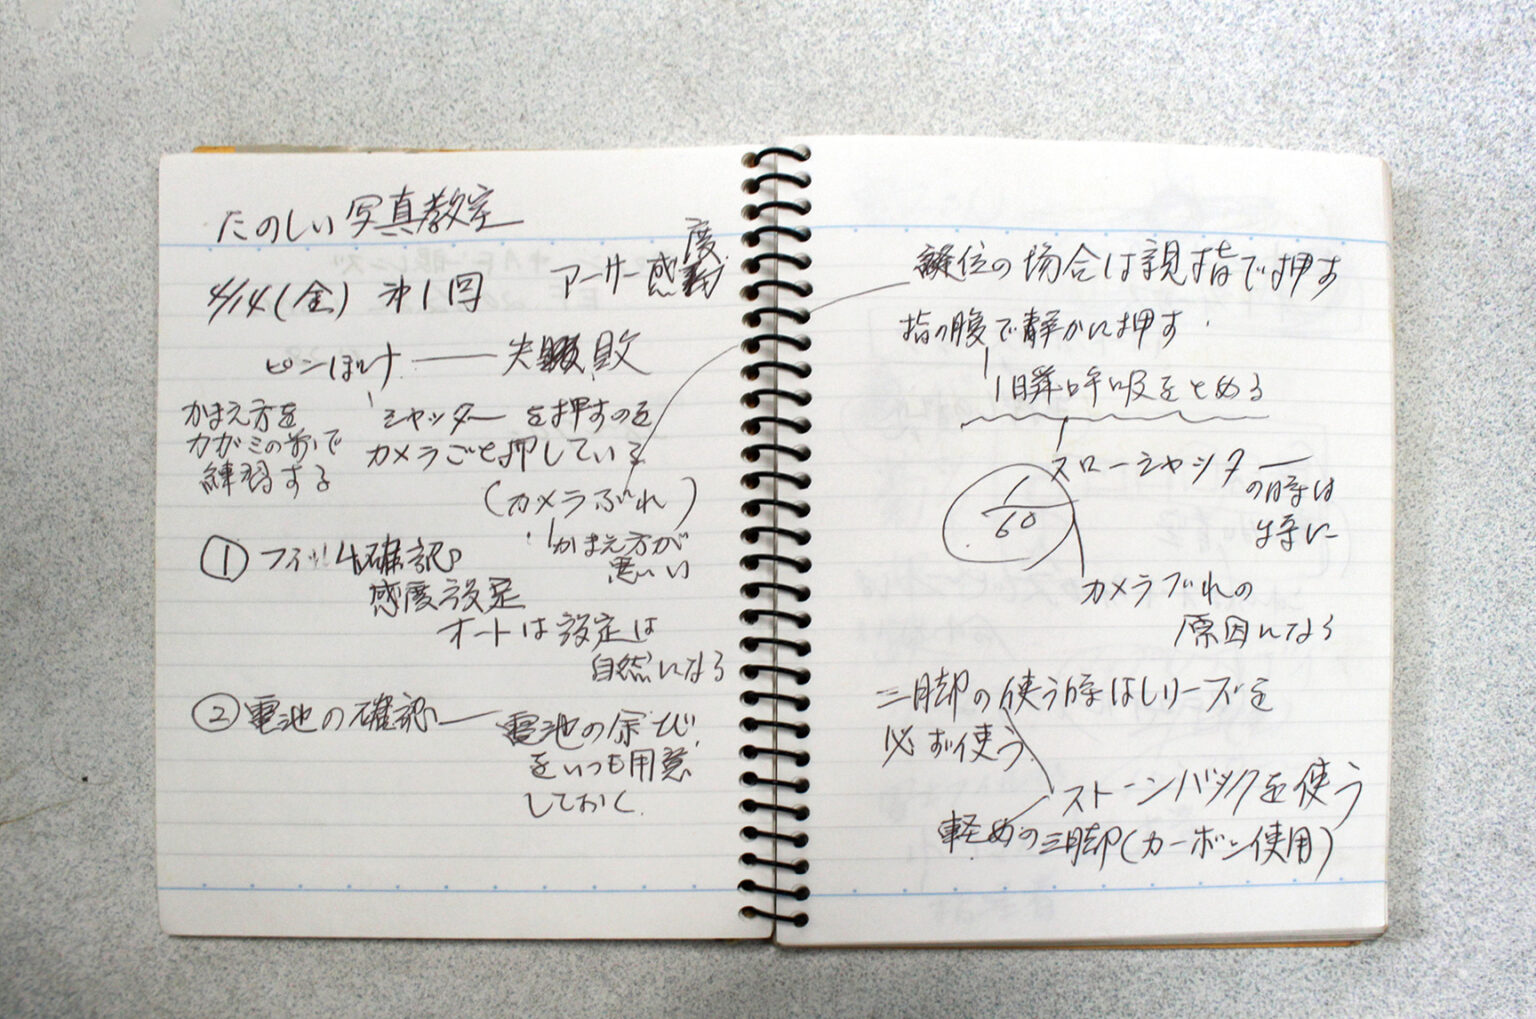 たのしい写真教室
4/14(金) 第1回
アーサー感度
ピンぼけ ── 失敗
シャッターを押すのを
カメラごと押している
かまえ方を
カガミの前で
練習する
(カメラぶれ)
かまえ方が
悪い
① フィルム確認
感度設定
オートは設定は
自然になる
② 電池の確認 ── 電池の余び
をいつも用意
しておく
位の場合は親指で押す
指の腹で静かに押す
1瞬呼吸をとめる
スローシャッター
の時は
特に
1/60
カメラブれの
原因になる
三脚の使う時はレリーズを
必ず使う
ストーンバックを使う
軽めの三脚(カーボン使用)